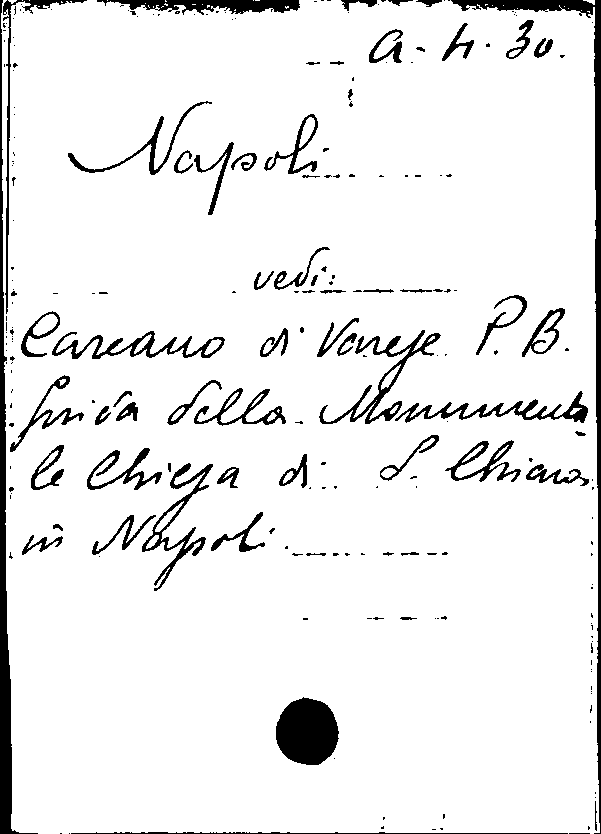 a.4.30.
Napoli
vedi:
Carcano di Varese P. B.
Guida della Monumenta-
le Chiesa di S. Chiara
in Napoli